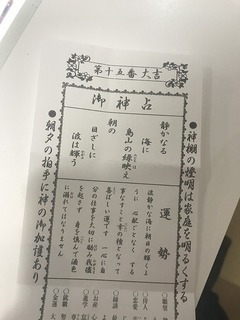 第十五番 大吉
御神占
●神棚の燈明は家庭を明るくする
静かなる
海に
島山の緑映え
朝の
日ざしに
波は輝う
●朝夕の拍手に神の御加護あり
運勢
波静かな海に朝日の輝くよ
うに 心配ごとなく する
事なすこと幸の種となって
喜ばしい運です 一心に自
分の仕事を大切に励み我儘
を起さず 身を慎んで酒色
に溺れてはなりません